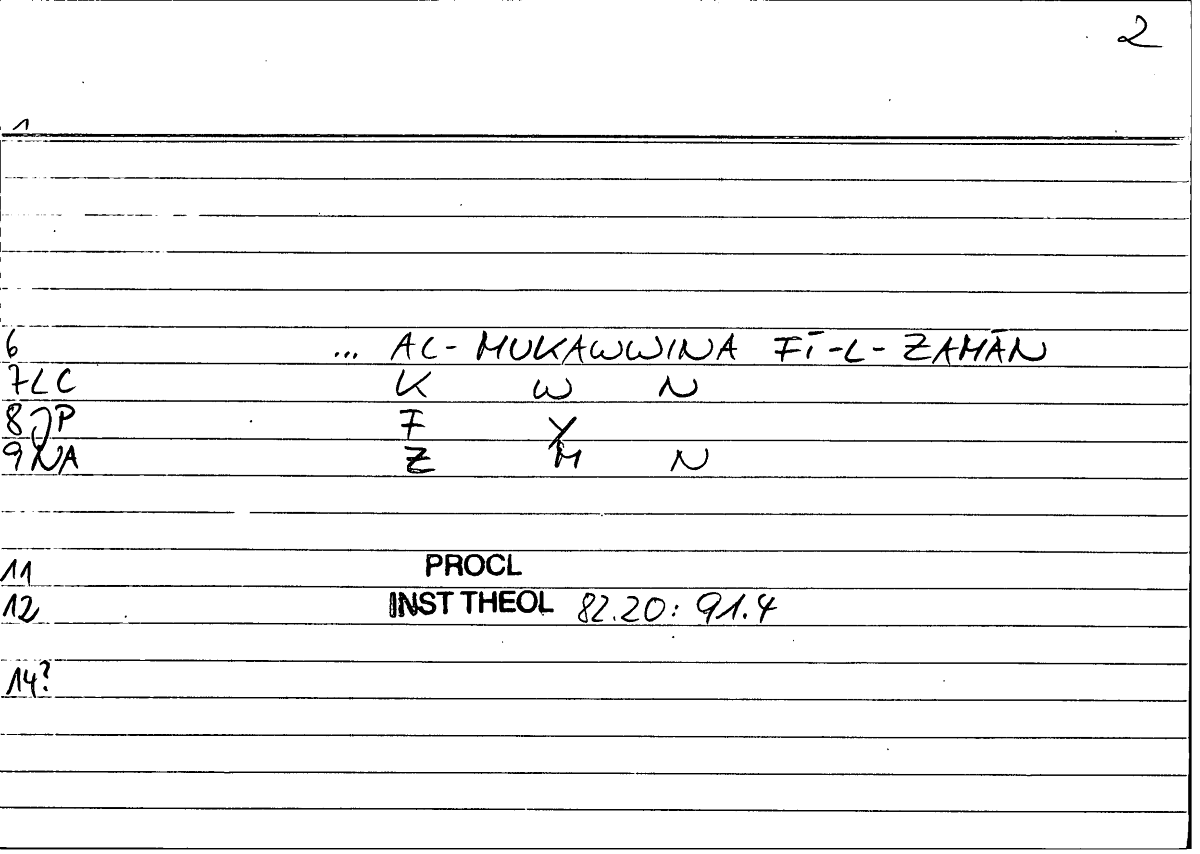 2
1
6 ... AL-MUKAWWINA FĪ-L-ZAMĀN
7LC K W N
8JP F Y
9NA Z M N
11 PROCL
12 INST THEOL 82.20: 91.4
14?